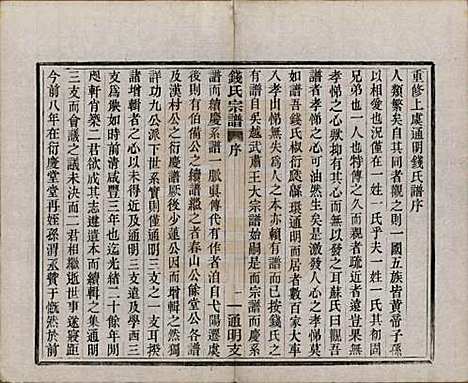 重修上虞通明錢氏譜序
人類繁矣自其同者觀之則一國五族皆黃帝子孫
人相也況僅在一姓一氏乎夫一姓一氏其初固
一父母之人也特傳之久而親者疏近者遠矣非
孝悌之心以發明之
孝悌之心歟抑有以發人孝悌之心耳蘇氏曰觀吾
譜者孝悌之心可油然而生矣是激發人心之孝悌其
吾錢氏椒衍瓞緜環通明而居者數百家大率
入孝出悌無失為人之本亦賴有譜已按錢氏之
有譜自吳越武肅王大宗譜始嗣是而宗譜而慶系
錢氏宗譜 序 一 通明支
譜而續慶系譜一脈眞傳代有作者洎自弋陽遷虞
後則有伯備公之續譜繼之者春山公餘堂公各譜
及漢村公之衍慶譜厥後少蓮公因而增輯之然獨
詳功九公派下世系實則僅通明之一支耳揆
諸前者以時修輯之意則通明三支及學西三
支為榮如時前清咸豐三年迄光緒二十餘年間
咫軒肖榮二君欲成其志遵遺本而續輯之集通明
三支而會議之議未決而二君相繼逝世事遂寢
今前八年在衍慶堂堂再姪孫渭丞贊于慨然於前